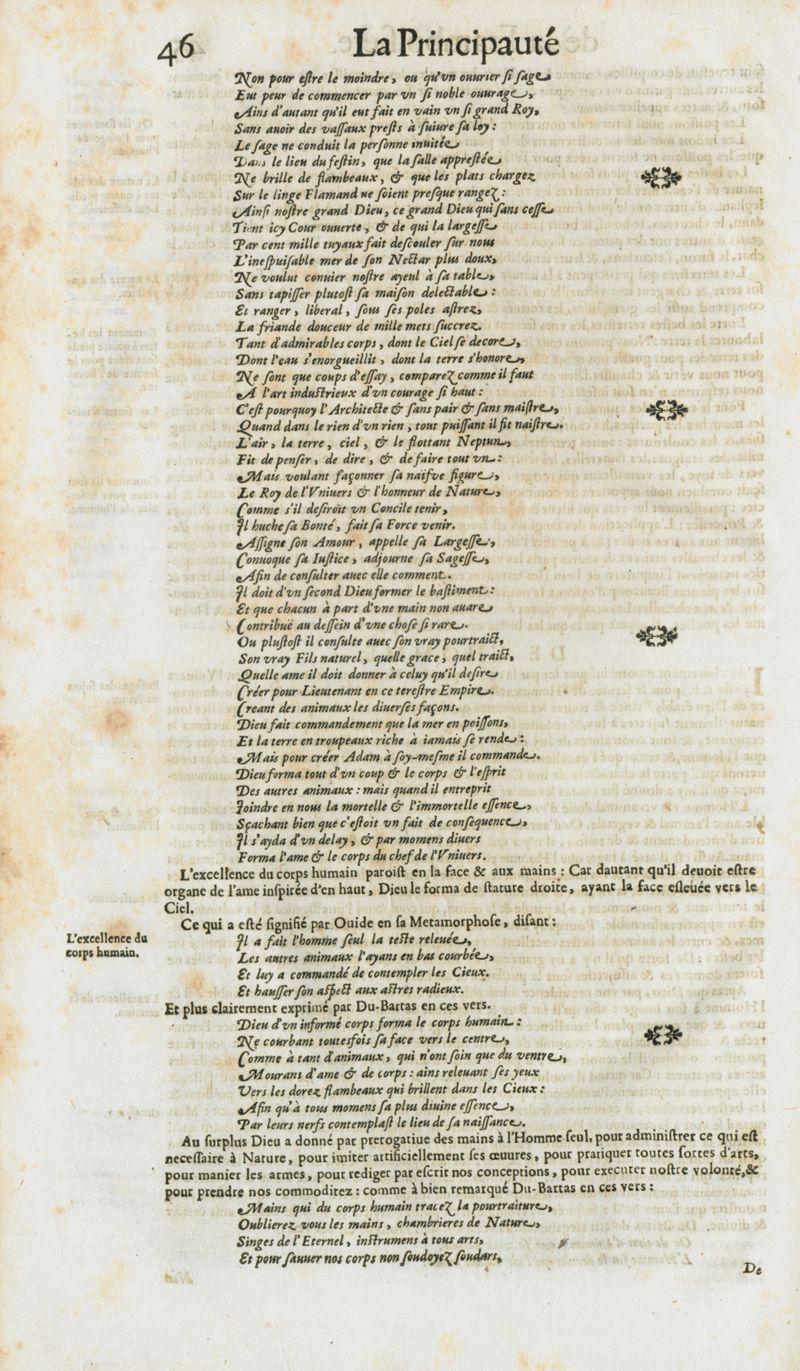 46 La Principauté
Non pour eſtre le moindre, ou qu'vn ouurier ſi ſage
Eut peur de commencer par vn ſi noble ouurage,
Ains d'autant qu'il eut fait en vain vn ſi grand Roy,
Sans auoir des vaſſaux preſts à ſuiure ſa loy:
Le ſage ne conduit la perſonne inuitée
Dans le lieu du feſtin, que la ſalle appreſtée
Ne brille de flambeaux, & que les plats chargez
Sur le linge Flamand ne ſoient preſque rangez:
Ainſi noſtre grand Dieu, ce grand Dieu qui ſans ceſſe
Tient icy Cour ouuerte, & de qui la largeſſe
Par cent mille tuyaux fait deſcouler ſur nous
L'ineſpuiſable mer de ſon Nectar plus doux,
Ne voulut conuier noſtre ayeul à ſa table,
Sans tapiſſer plutoſt ſa maiſon delectable:
Et ranger, liberal, ſous ſes poles aſtrez,
La friande douceur de mille mets ſuccrez.
Tant d'admirables corps, dont le Ciel ſe decore,
Dont l'eau s'enorgueillit, dont la terre s'honore,
Ne ſont que coups d'eſſay, comparez comme il faut
A l'art induſtrieux d'vn courage ſi haut:
C'eſt pourquoy l'Architecte & ſans pair & ſans maiſtre,
Quand dans le rien d'vn rien, tout puiſſant il fit naiſtre.
L'air, la terre, ciel, & le flottant Neptune,
Fit de penſer, de dire, & de faire tout vn:
Mais voulant façonner ſa naifve figure,
Le Roy de l'Vniuers & l'honneur de Nature,
Comme s'il deſiroit vn Concile tenir,
Il huche ſa Bonté, fait ſa Force venir.
Aſſigne ſon Amour, appelle ſa Largeſſe,
Conuoque ſa Iuſtice, adjourne ſa Sageſſe,
Afin de conſulter auec elle comment.
Il doit d'vn ſecond Dieu former le baſtiment:
Et que chacun à part d'vne main non auare
Contribuë au deſſein d'vne choſe ſi rare.
Ou pluſtoſt il conſulte auec ſon vray pourtraict,
Son vray Fils naturel, quelle grace, quel traict,
Quelle ame il doit donner à celuy qu'il deſire
Créer pour Lieutenant en ce tereſtre Empire.
Creant des animaux les diuerſes façons.
Dieu fait commandement que la mer en poiſſons,
Et la terre en troupeaux riche à iamais ſe rende:
Mais pour créer Adam à ſoy-meſme il commande.
Dieu forma tout d'vn coup & le corps & l'eſprit
Des autres animaux: mais quand il entreprit
Joindre en nous la mortelle & l'immortelle eſſence,
Sçachant bien que c'eſtoit vn fait de conſequence,
Il s'ayda d'vn delay, & par momens diuers
Forma l'ame & le corps du chef de l'Vniuers.
L'excellence du corps humain paroiſt en la face & aux mains: Car dautant qu'il deuoit eſtre
organe de l'ame inſpirée d'en haut, Dieu le forma de ſtature droite, ayant la face eſleuée vers le
Ciel.
Ce qui a eſté ſignifié par Ouide en ſa Metamorphoſe, diſant:
L'excellence du
corps humain.
Il a fait l'homme ſeul la teſte releuée,
Les autres animaux l'ayans en bas courbée,
Et luy a commandé de contempler les Cieux.
Et hauſſer ſon aſpect aux aſtres radieux.
Et plus clairement exprimé par Du-Bartas en ces vers.
Dieu d'vn informé corps forma le corps humain:
Ne courbant toutesfois ſa face vers le centre,
Comme à tant d'animaux, qui n'ont ſoin que du ventre,
Mourans d'ame & de corps: ains releuant ſes yeux
Vers les dorez flambeaux qui brillent dans les Cieux:
Afin qu'à tous momens ſa plus diuine eſſence,
Par leurs nerfs contemplaſt le lieu de ſa naiſſance.
Au ſurplus Dieu a donné par prerogatiue des mains à l'Homme ſeul, pour adminiſtrer ce qui eſt
neceſſaire à Nature, pour imiter artificiellement ſes œuures, pour pratiquer toutes ſortes d'arts,
pour manier les armes, pour rediger par eſcrit nos conceptions, pour executer noſtre volonté, &
pour prendre nos commoditez: comme à bien remarqué Du-Bartas en ces vers:
Mains qui du corps humain tracez la pourtraiture,
Oublierez vous les mains, chambrieres de Nature,
Singes de l'Eternel, inſtrumens à tous arts,
Et pour ſauuer nos corps non ſoudoyez ſoudars,
De